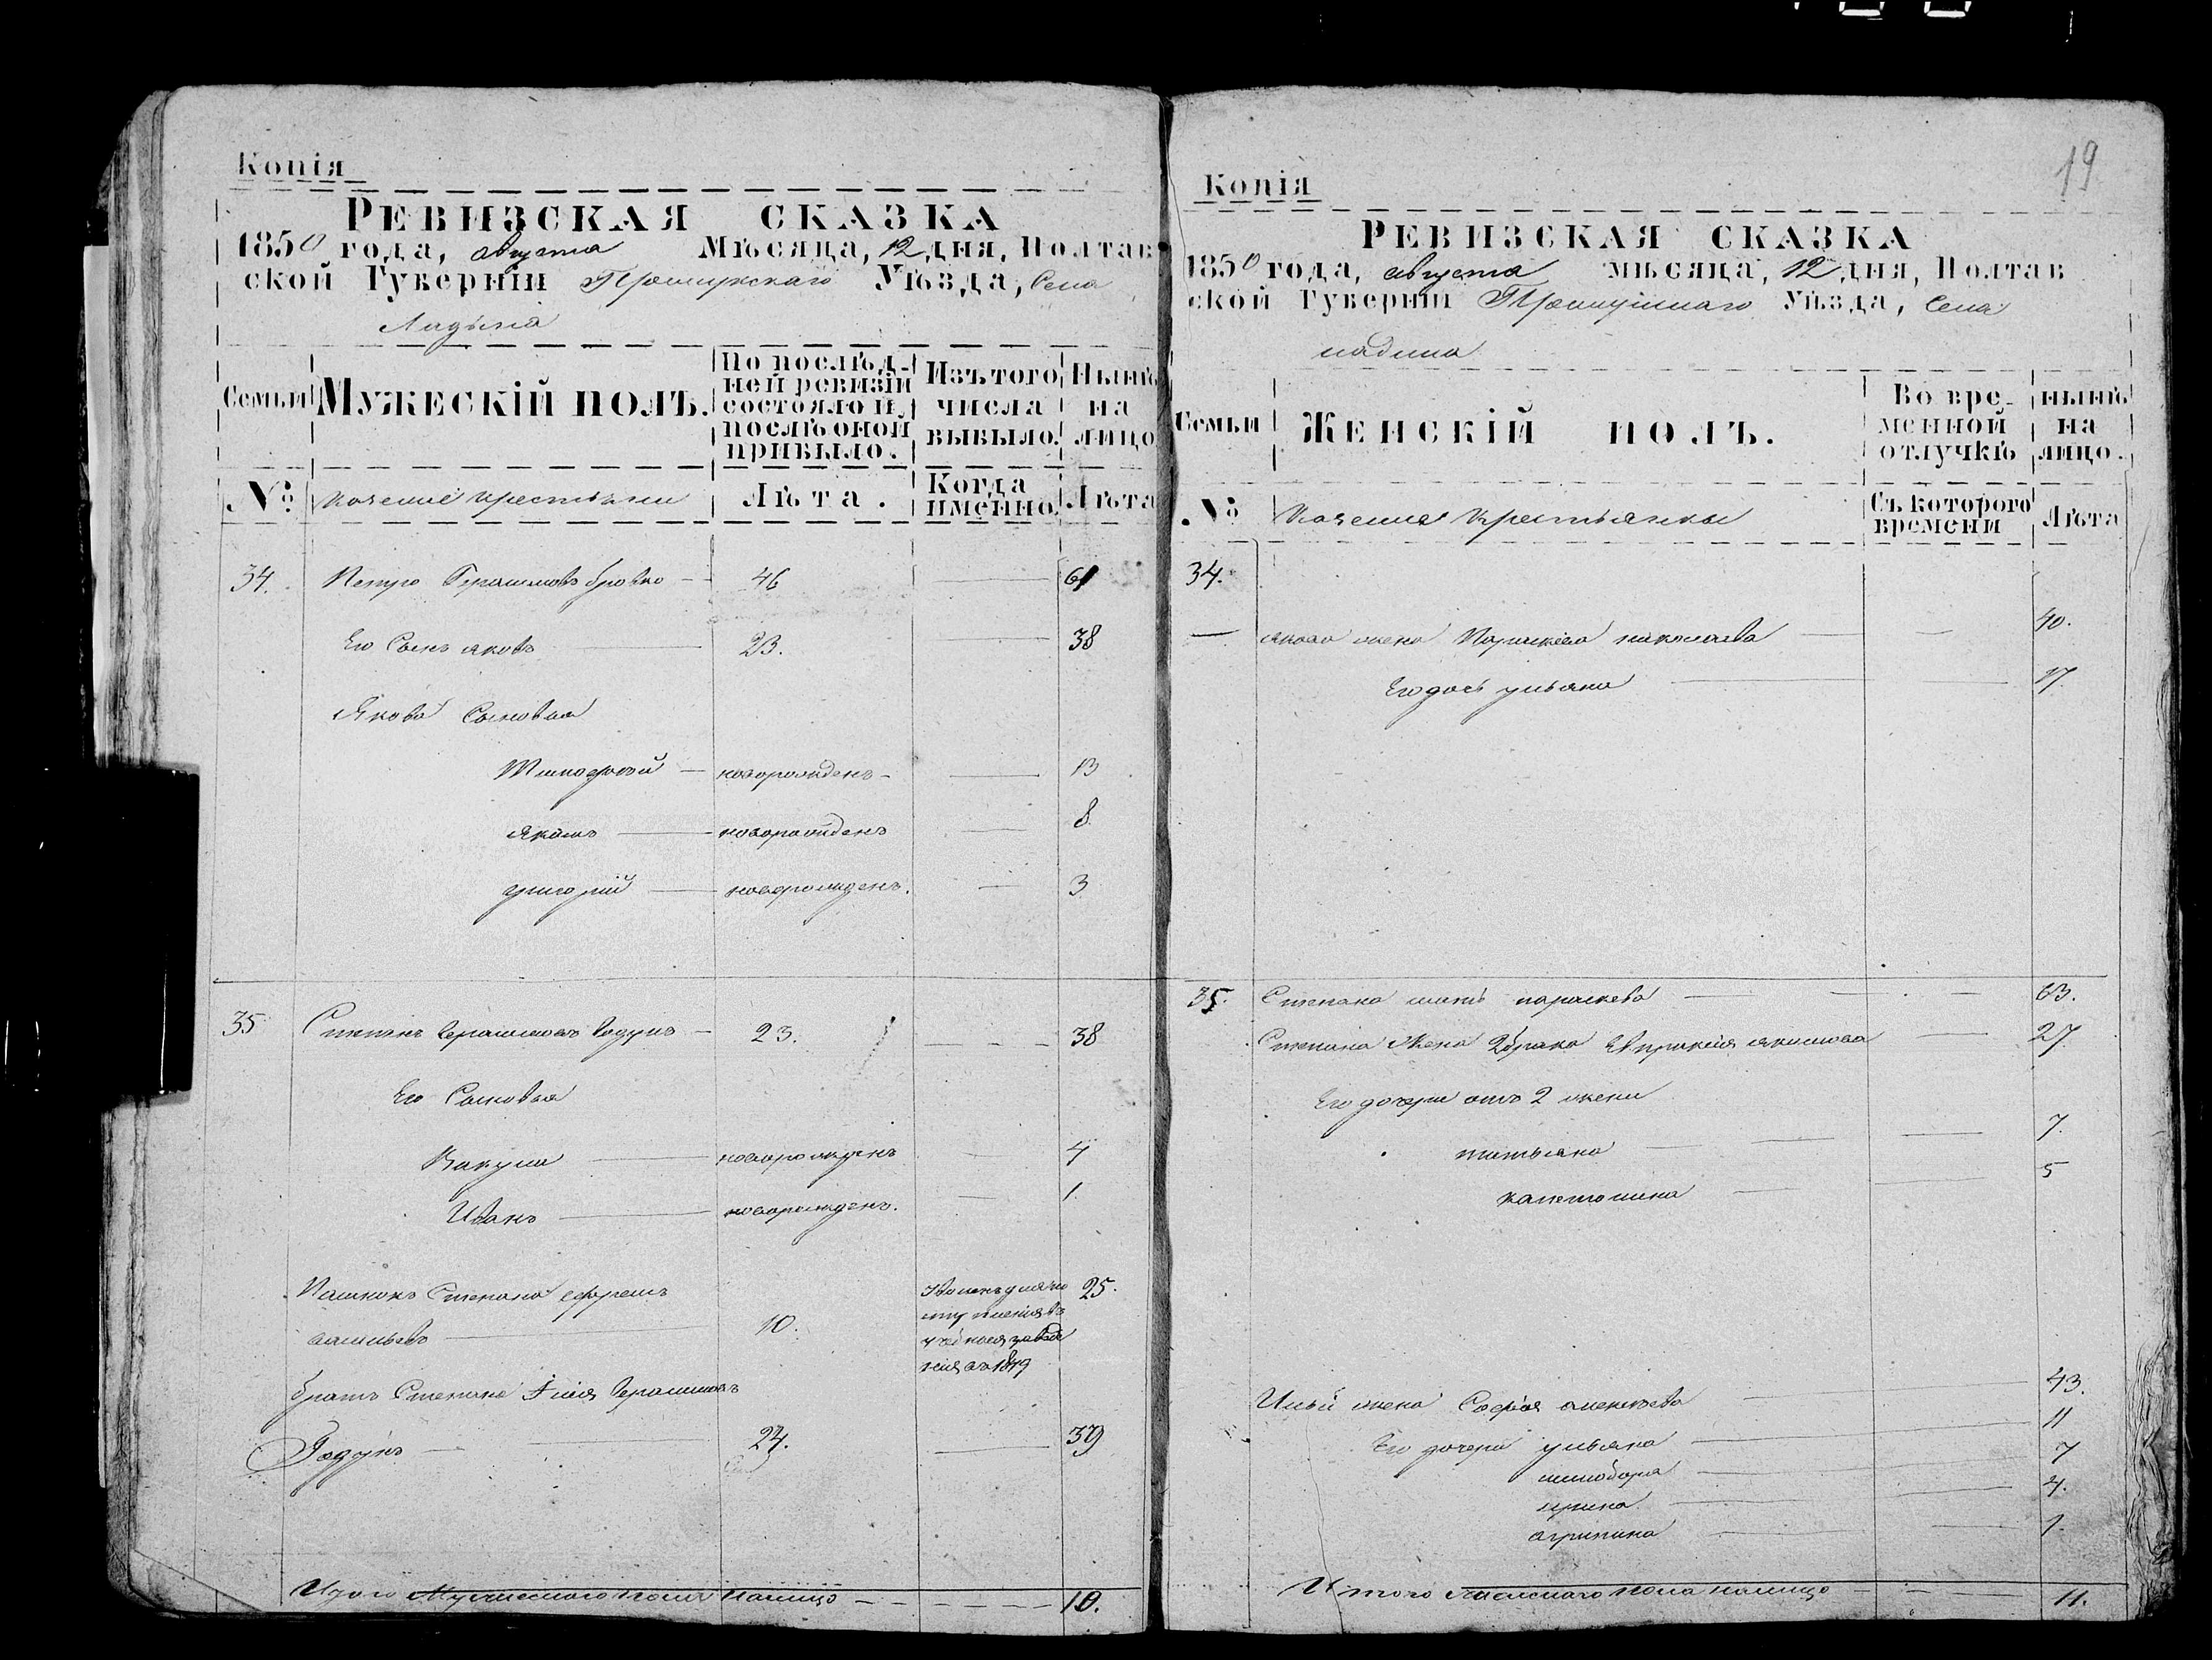 Копія
РЕВИЗСКАЯ СКАЗКА
1850 года, августа Мѣсяца, 12 дня, Полтав
ской Губерніи Прилукскаго Уѣзда, Села
Ладына
Семьи
МУЖЕСКІЙ ПОЛЪ.
По послѣд-
ней ревизіи
состояло и
послѣ оной
прибыло.
Изъ того
числа
выбыло.
Нынѣ
на
лицо
№
казенные крестьяне
Лѣта.
Когда
именно.
Лѣта
34. Петро Герасимовъ бровко 46 61
Его Сынъ яковъ 23. 38
Якова Сыновья
Тимофѣй новорожденъ 13
Якимъ новорожденъ 8
григорій новорожденъ. 3
35 Степанъ Герасимовъ Годунъ 23. 38
Его Сыновья
Вакула новорожденъ 4
Иванъ новорожденъ. 1.
Степана ефремъ 25.
10.
1849
братъ Степана Илія Герасимовъ
Годунъ 24. 39
Итого Мужескаго пола налицо 10.
19
Копія
РЕВИЗСКАЯ СКАЗКА
1850 года, августа мѣсяца, 12 дня, Полтав
ской Губерніи Уѣзда, Села
ладина
Семьи
ЖЕНСКІЙ ПОЛЪ.
Во вре-
менной
отлучкѣ
нынѣ
на
лицо.
№
казенные крестьянки
Съ которого
времени
Лѣта
34.
якова жена Параскева николаева 40.
Его дочь ульяна 17.
35. Степана мать параскева 63.
Степана Жена 2 брака Евпраксія якимова 27.
Его дочери отъ 2 жены
татьяна 7.
капитолина 5
Ильи жена Софія алексѣева 43.
Его дочери ульяна 11
минодора 7
ирина 4.
агрипина 1.
Итого женскаго пола налицо 11.